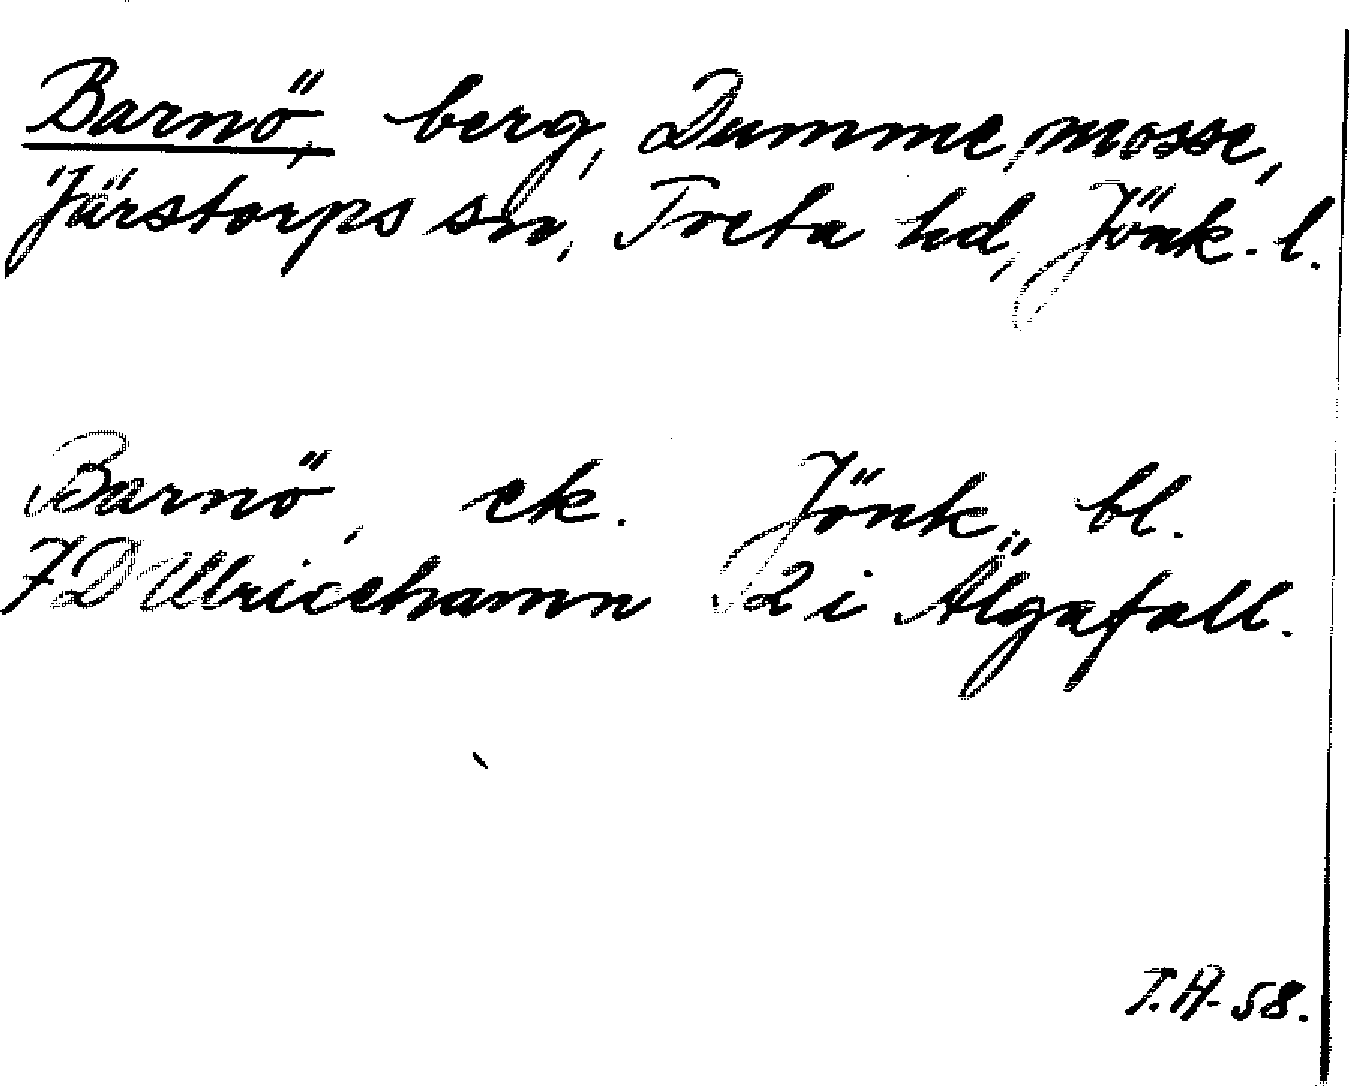 Barnö, berg, Dumme mosse,
Järstorps sn, Tveta hd, Jönk. l.
Barnö, ek. Jönk. bl.
7D Ulricehamn 52 i Älgafall.
T.A. 58.